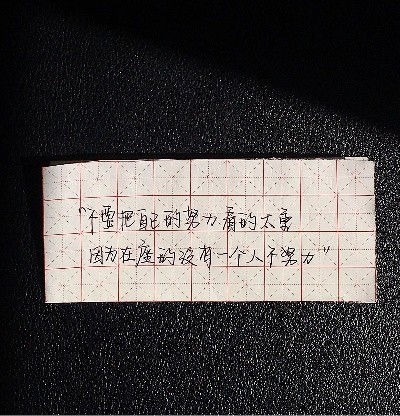 "不要把自己的努力看的太重
因为在座的没有一个人不努力"